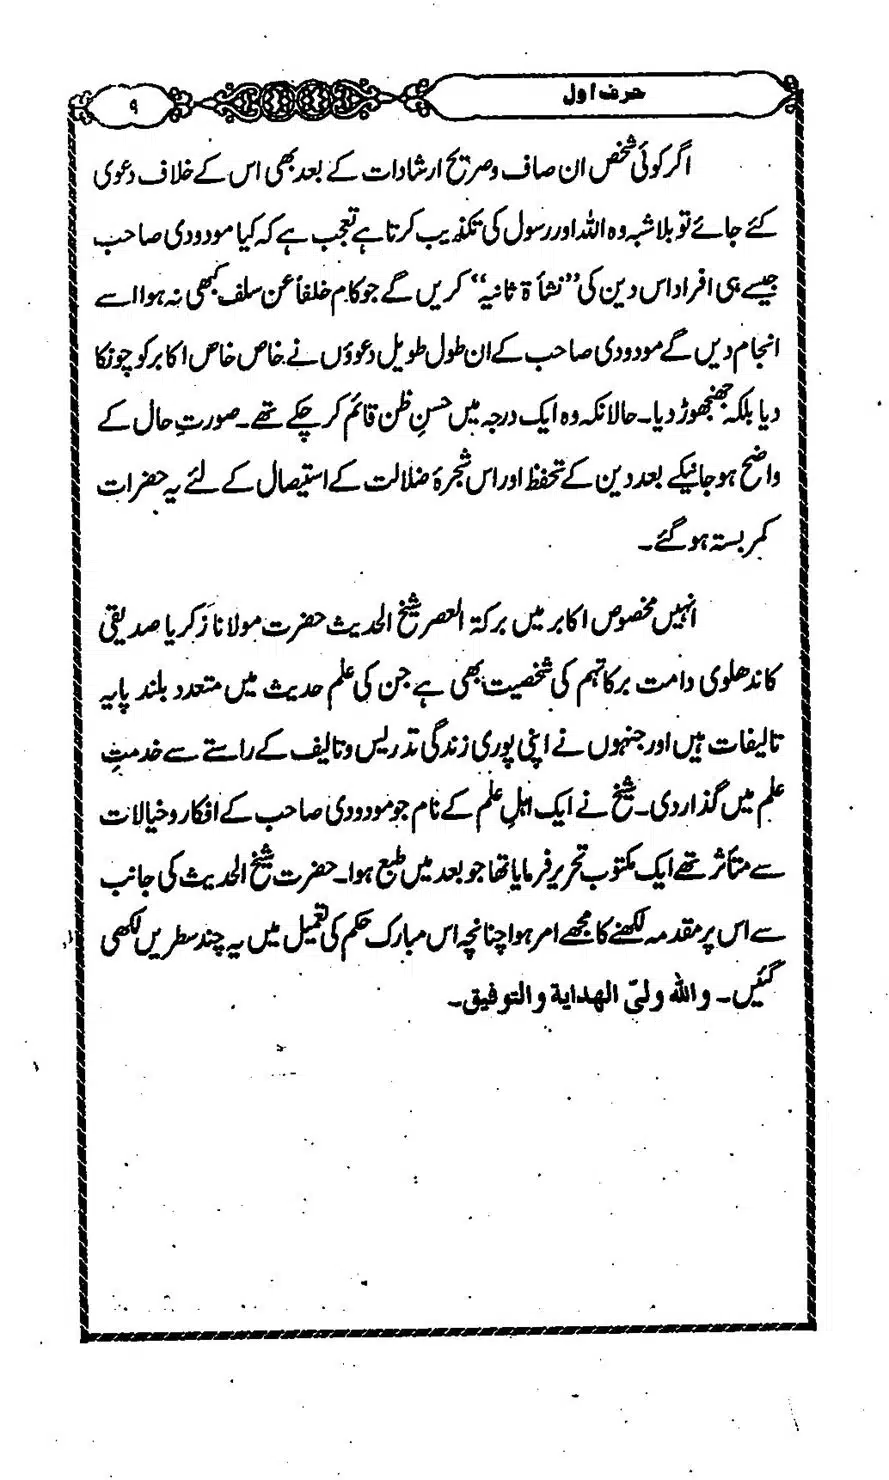 حرف اول
۹
اگر کوئی شخص ان صاف و صریح ارشادات کے بعد بھی اس کے خلاف دعوی
کئے جائے تو بلا شبہ وہ اللہ اور رسول کی تکذیب کرتا ہے تعجب ہے کہ کیا مودودی صاحب
جیسے ہی افراد اس دین کی ”نشأۃ ثانیہ“ کریں گے جو کام خلفاً عن سلف کبھی نہ ہوا اسے
انجام دیں گے مودودی صاحب کے ان طول طویل دعوؤں نے خاص خاص اکابر کو چونکا
دیا بلکہ جھنجھوڑ دیا۔ حالانکہ وہ ایک درجہ میں حسنِ ظن قائم کر چکے تھے۔ صورتِ حال کے
واضح ہو جانیکے بعد دین کے تحفظ اور اس شجرۂ ضلالت کے استیصال کے لئے یہ حضرات
کمر بستہ ہو گئے۔
انہیں مخصوص اکابر میں برکۃ العصر شیخ الحدیث حضرت مولانا زکریا صدیقی
کاندھلوی دامت برکاتہم کی شخصیت بھی ہے جن کی علم حدیث میں متعدد بلند پایہ
تالیفات ہیں اور جنہوں نے اپنی پوری زندگی تدریس و تالیف کے راستے سے خدمتِ
علم میں گذار دی۔ شیخ نے ایک اہلِ علم کے نام جو مودودی صاحب کے افکار و خیالات
سے متأثر تھے ایک مکتوب تحریر فرمایا تھا جو بعد میں طبع ہوا۔ حضرت شیخ الحدیث کی جانب
سے اس پر مقدمہ لکھنے کا مجھے امر ہوا چنانچہ اس مبارک حکم کی تعمیل میں یہ چند سطریں لکھی
گئیں۔ واللہ ولیّ الهدایة والتوفیق۔